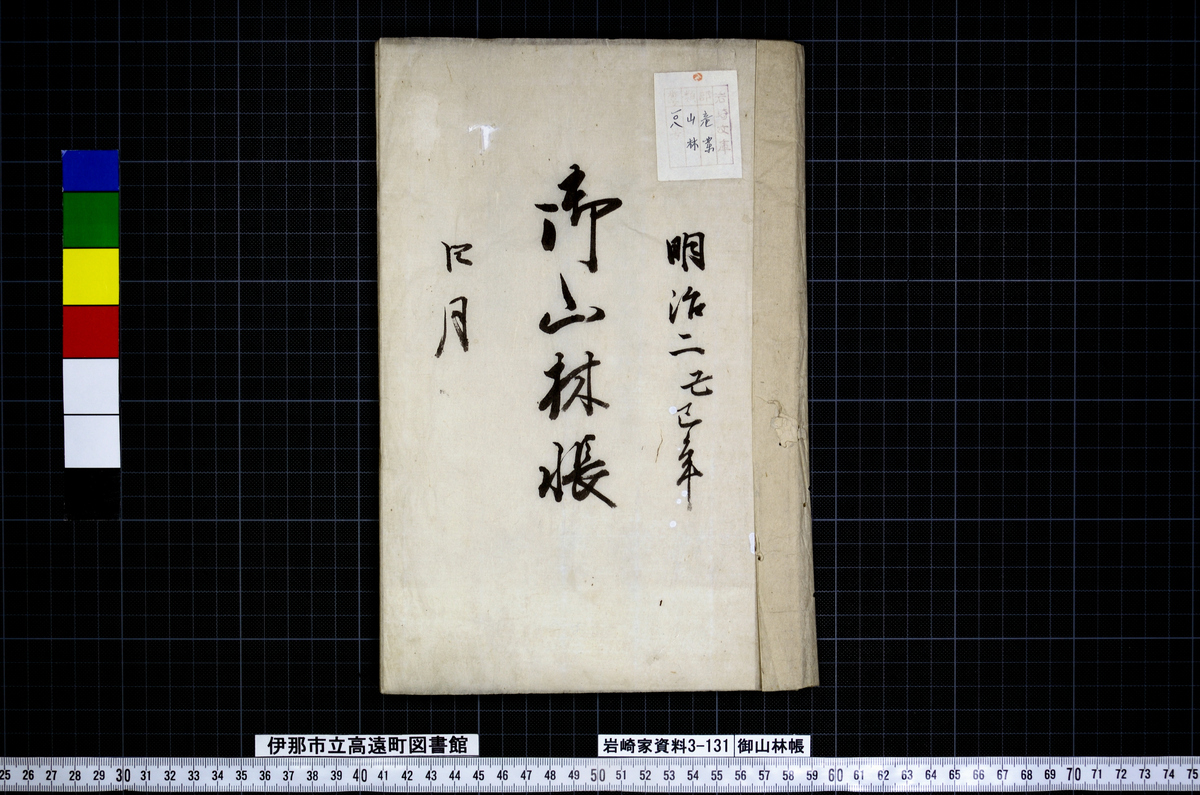 明治二己巳年
御山林帳
四月
産業
山林
一〇八
伊那市立高遠町図書館
岩崎家資料3-131
御山林帳
25 26 27 28 29 30 31 32 33 34 35 36 37 38 39 40 41 42 43 44 45 46 47 48 49 50 51 52 53 54 55 56 57 58 59 60 61 62 63 64 65 66 67 68 69 70 71 72 73 74 75